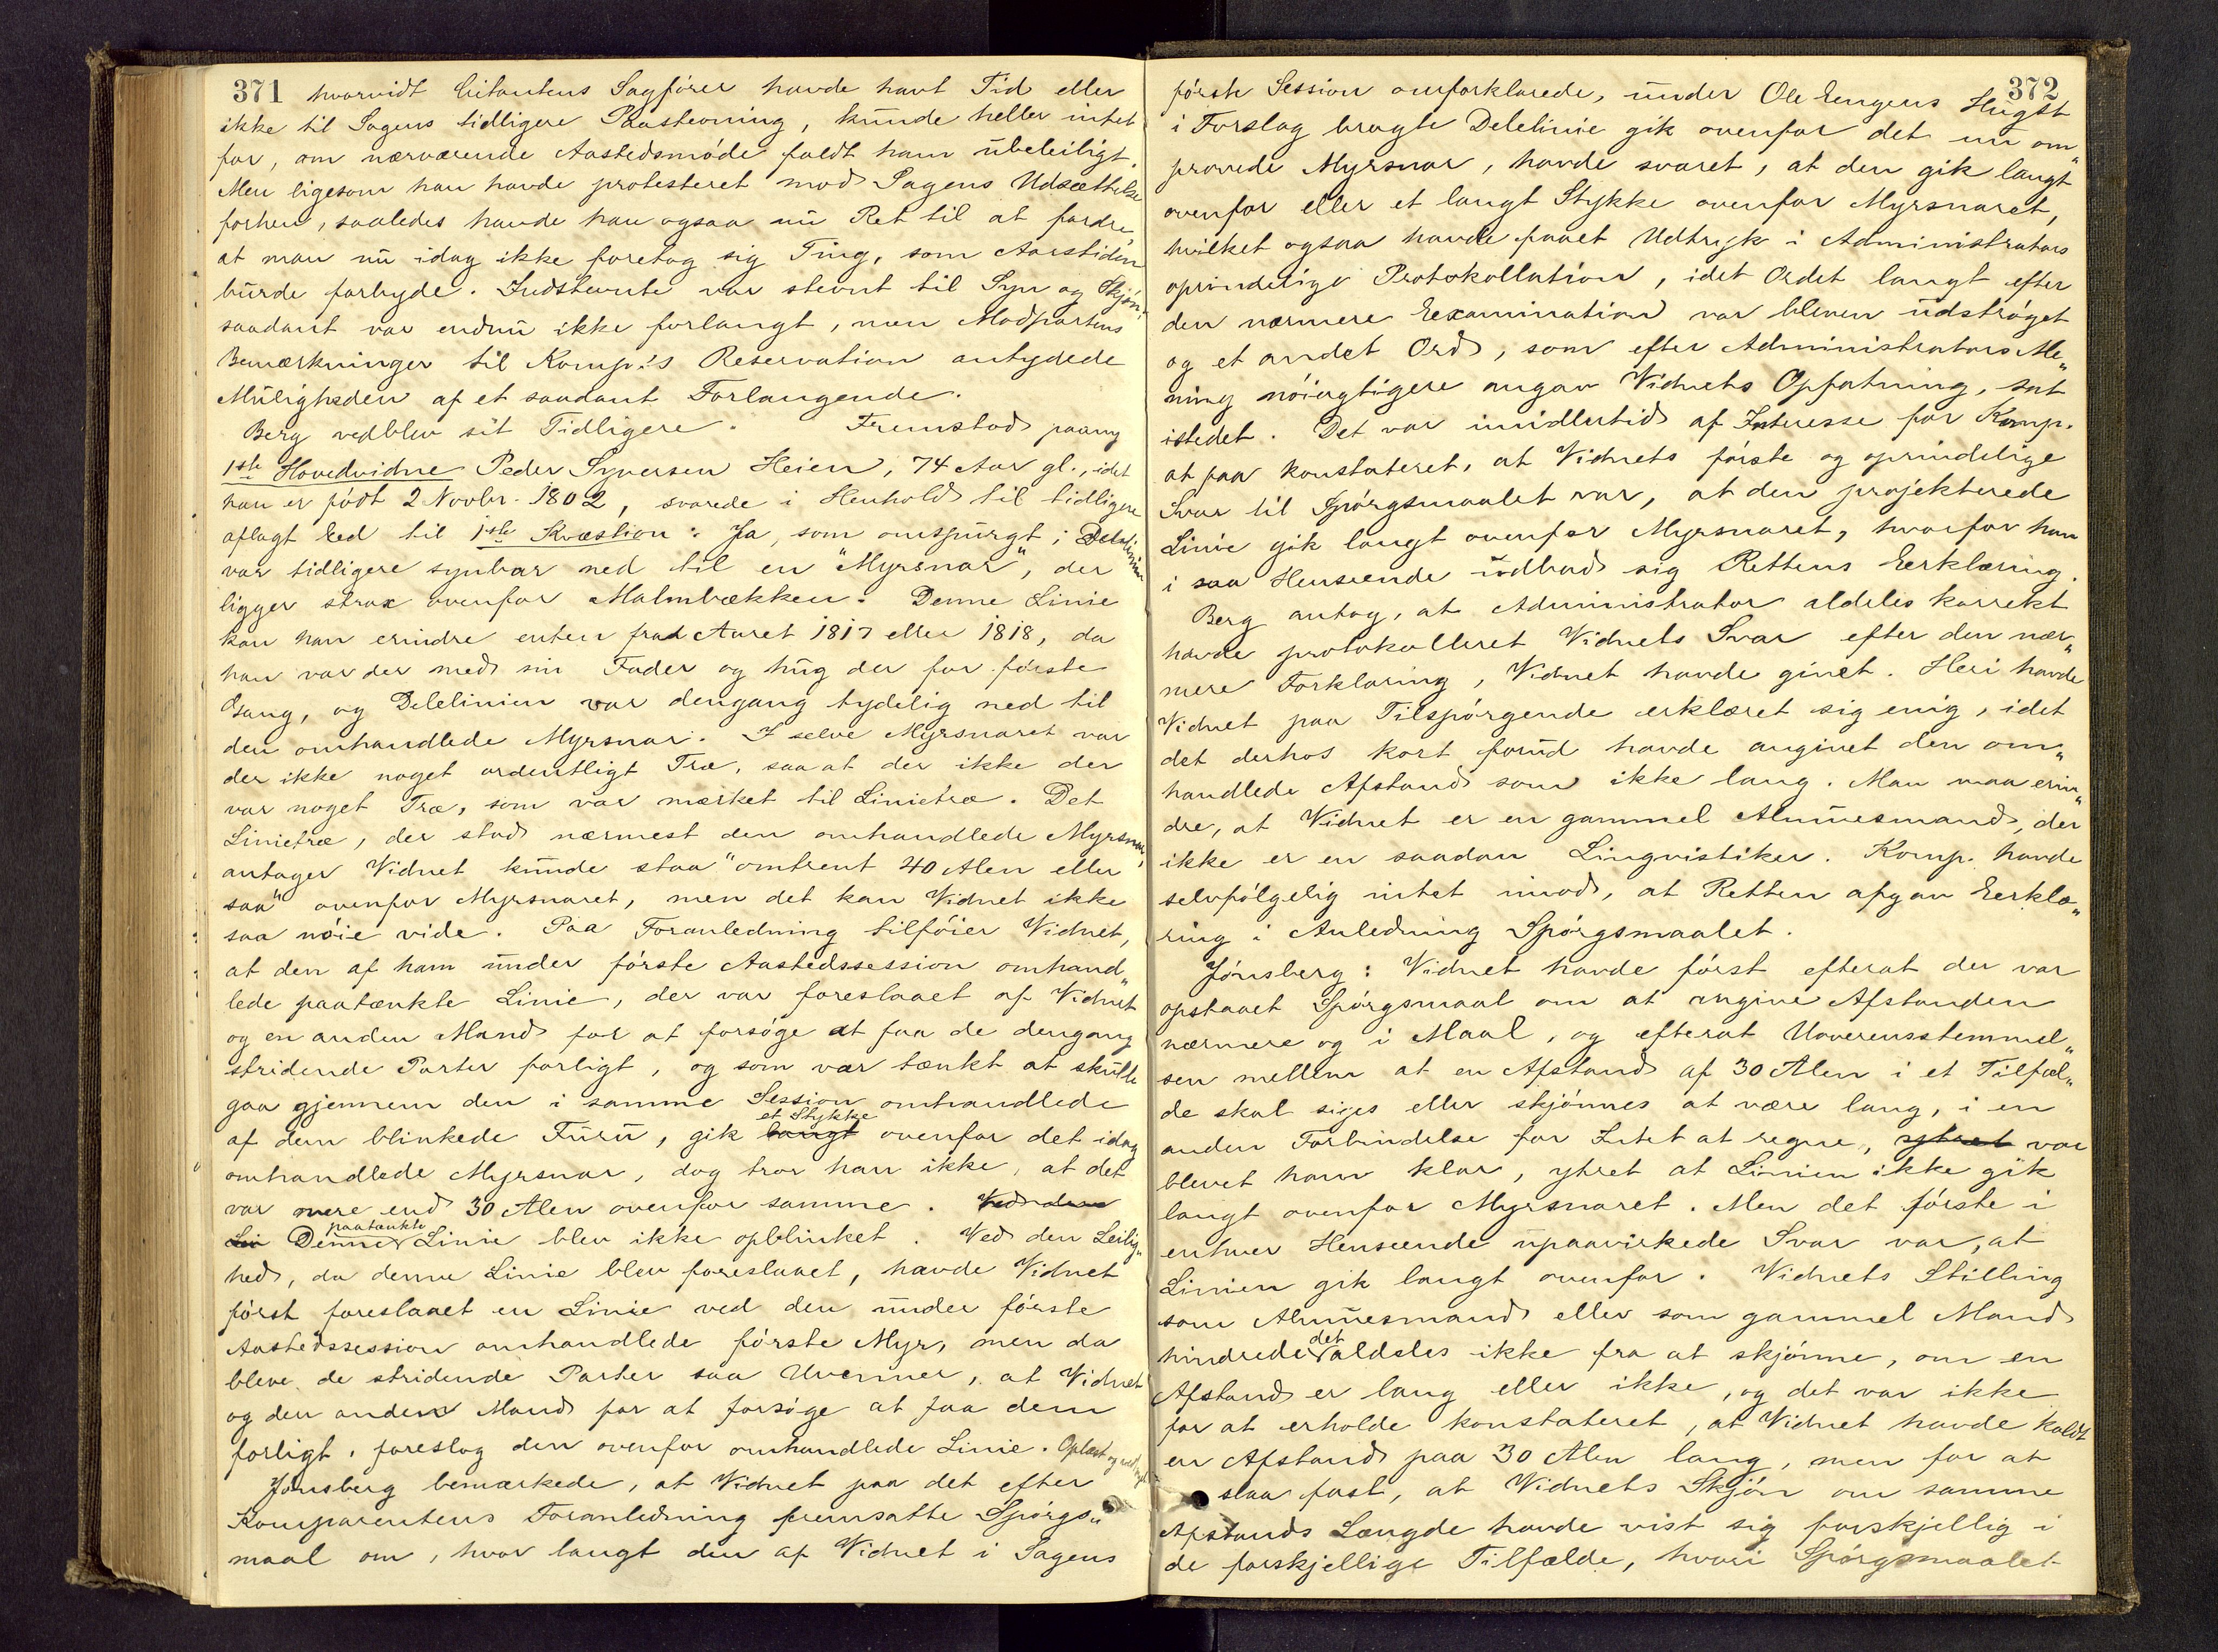 371 hvorvidt Citantens Sagfører havde havt Tid eller
ikke til Sagens tidligere Paastevning, kunde heller intet
for, om nærværende Aastedsmøde faldt ham ubeleiligt.
Men ligesom han havde protesteret mod Sagens Udsættelse
forhen, saaledes havde han ogsaa nu Ret til at fordre,
at man nu idag ikke foretog sig Ting, som Aarstiden
burde forbyde. Indstevnte var stevnt til Syn og Skjøn;
saadant var endnu ikke forlangt, men Modpartens
Bemærkninger til Komp.'s Reservation antydede
Muligheden af et saadant Forlangende.
Berg vedblev sit Tidligere. Fremstod paany
1ste Hovedvidne Peder Syversen Heien, 74 Aar gl., idet
han er født 2 Novbr. 1802, svarede i Henhold til tidligere
aflagt Eed til 1ste Kvæstion: Ja, som omspurgt; Delelinien
var tidligere synbar ned til en "Myrsnar", der
ligger strax ovenfor Malmbækken. Denne Linie
kan han erindre enten fra Aaret 1817 eller 1818, da
han var der med sin Fader og hug der for første
Gang, og Delelinien var dengang tydelig ned til
den omhandlede Myrsnar. I selve Myrsnaret var
der ikke noget ordentligt Træ, saa at der ikke der
var noget Træ, som var mærket til Linietræ. Det
Linietræ, der stod nærmest den omhandlede Myrsnar,
antager Vidnet kunde staa "omtrent 40 Alen eller
saa" ovenfor Myrsnaret, men det kan Vidnet ikke
saa nøie vide. Paa Foranledning tilføier Vidnet,
at den af ham under første Aastedssession omhand„
lede paatænkte Linie, der var foreslaaet af Vidnet
og en anden Mand for at forsøge at faa de dengang
stridende Parter forligt, og som var tænkt at skulle
gaa gjennem den i samme Session omhandlede
af dem blinkede Furu, gik langt et Stykke ovenfor det idag
omhandlede Myrsnar, dog tror han ikke, at det
var mere end 30 Alen ovenfor samme. Ved den
Lin Denne paatænkte Linie blev ikke opblinket. Ved den Leilig„
hed, da denne Linie blev foreslaaet, havde Vidnet
først foreslaaet en Linie ved den under første
Aastedssession omhandlede første Myr, men da
bleve de stridende Parter saa Uvenner, at Vidnet
og den anden Mand for at forsøge at faa dem
forligt, foreslog den ovenfor omhandlede Linie. Oplæst og vedtaget.
Jønsberg bemærkede, at Vidnet paa det efter
Komparentens Foranledning fremsatte Spørgs„
maal om, hvor langt den af Vidnet i Sagens
372
første Session omforklarede, under Ole Engens Hugst
i Forslag bragte Delelinie gik ovenfor det nu om„
prøvede Myrsnar, havde svaret, at den gik langt
ovenfor eller et langt Stykke ovenfor Myrsnaret,
hvilket ogsaa havde faaet Udtryk i Administrators
oprindelige Protokollation, idet Ordet langt efter
den nærmere Examination var bleven udstrøget
og et andet Ord, som efter Administrators Me„
ning nøiagtigere angav Vidnets Opfatning, sat
istedet. Det var imidlertid af Interesse for Komp.
at faa konstateret, at Vidnets første og oprindelige
Svar til Spørgsmaalet var, at den projekterede
Linie gik langt ovenfor Myrsnaret, hvorfor han
i saa Henseende udbad sig Rettens Eerklæring.
Berg antog, at Administrator aldeles korrekt
havde protokolleret Vidnets Svar efter den nær„
mere Forklaring, Vidnet havde givet. Heri havde
Vidnet paa Tilspørgende erklæret sig enig, idet
det derhos kort forud havde angivet den om„
handlede Afstand som ikke lang. Man maa erin„
dre, at Vidnet er en gammel Almuesmand, der
ikke er en saadan Lingvistiker. Komp. havde
selvfølgelig intet imod, at Retten afgav Eerklæ„
ring i Anledning Spørgsmaalet.
Jønsberg: Vidnet havde først efterat der var
opstaaet Spørgsmaal om at angive Afstanden
nærmere og i Maal, og efterat Uoverensstemmel„
sen mellem at en Afstand af 30 Alen i et Tilfæl„
de skal siges eller skjønnes at være lang, i en
anden Forbindelse for Intet at regne, ytret var
blevet ham klar, ytret at Linien ikke gik
langt ovenfor Myrsnaret. Men det første i
enhver Henseende upaavirkede Svar var, at
Linien gik langt ovenfor. Vidnets Stilling
som Almuesmand eller som gammel Mand
hindrede det aldeles ikke fra at skjønne, om en
Afstand er lang eller ikke, og det var ikke
for at erholde konstateret, at Vidnet havde kaldt
en Afstand paa 30 Alen lang, men for at
slaa fast, at Vidnets Skjøn om samme
Afstands Længde havde vist sig forskjellig i
de forskjellige Tilfælde, hvori Spørgsmaalet